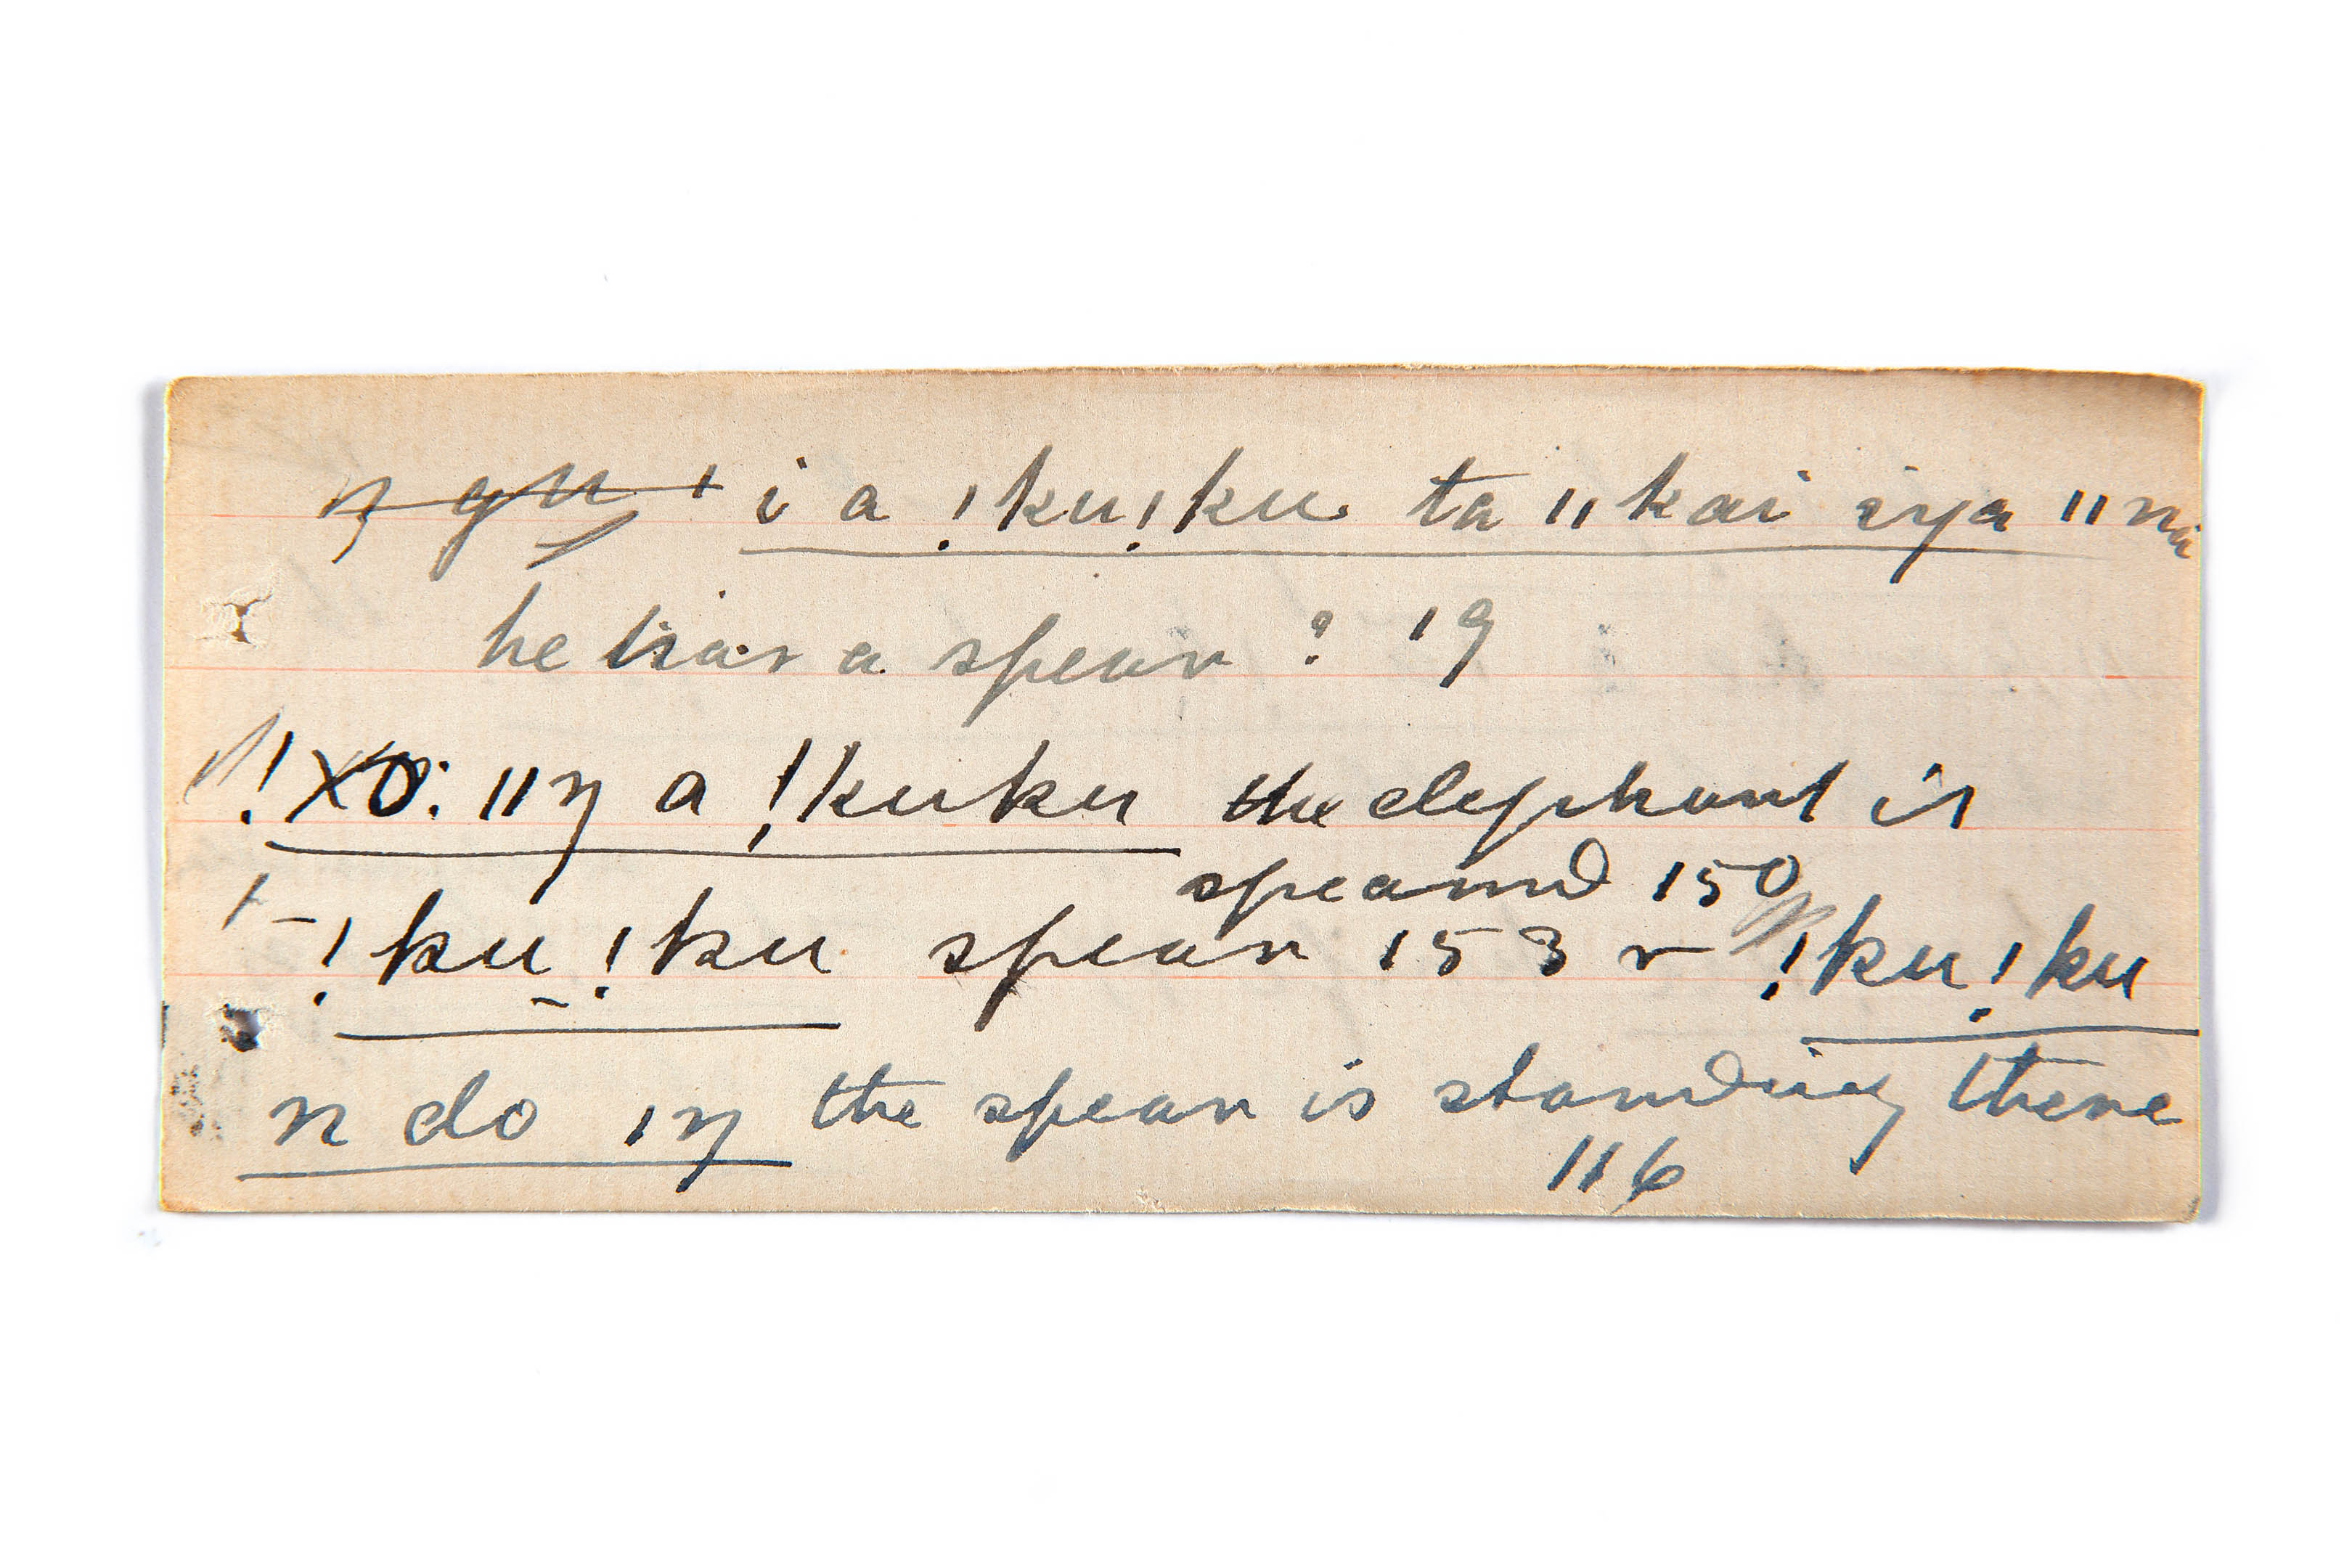 i a !ku!ku ta ǁkai iya ǁna
he has a spear ? 19
!xo: ǁŋ a !kuku the elephant is
speared 150
!ku!ku spear 153 r !ku!ku
n do ıŋ the spear is standing there
116